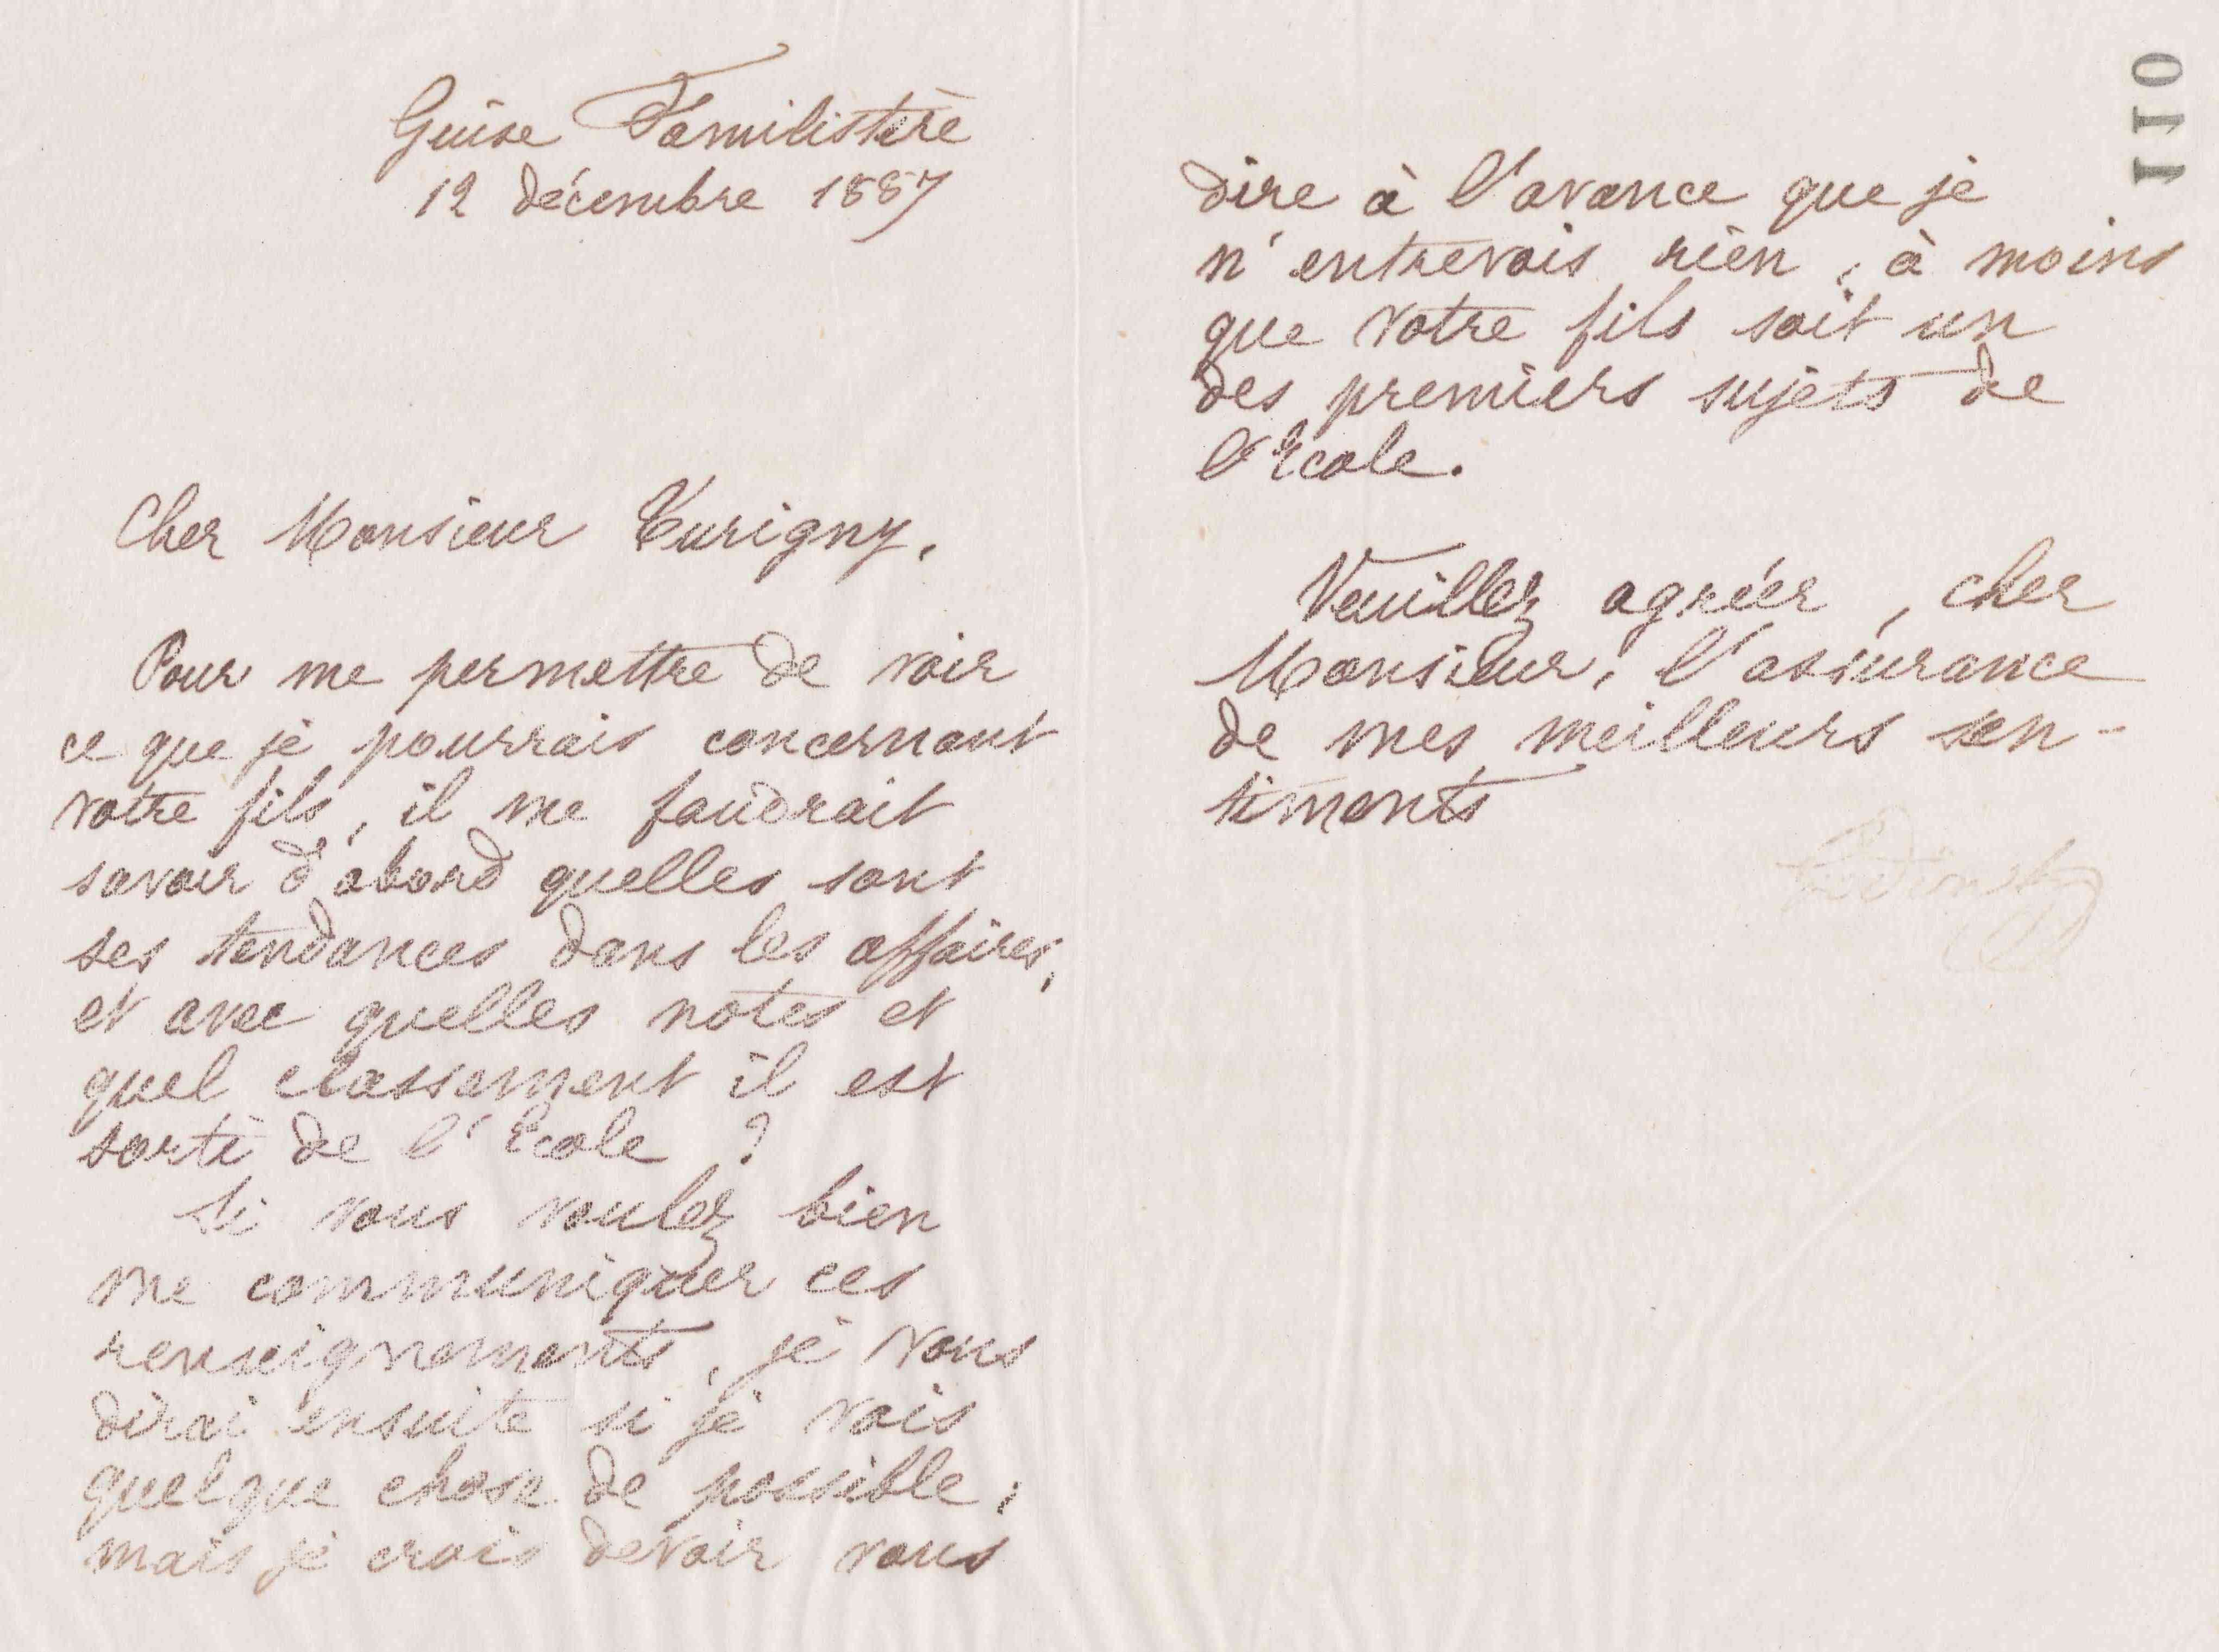 Guise Familistère
12 décembre 1887
Cher Monsieur Turigny,
Pour me permettre de voir
ce que je pourrais concernant
votre fils, il me faudrait
savoir d'abord quelles sont
ses tendances dans les affaires,
et avec quelles notes et
quel classement il est
sorti de l'Ecole ?
Si vous voulez bien
me communiquer ces
renseignements, je vous
dirai ensuite si je vois
quelque chose de possible ;
mais je crois devoir vous
110
dire à l'avance que je
n'entrevois rien, à moins
que votre fils soit un
des premiers sujets de
l'Ecole.
Veuillez agréer, cher
Monsieur, l'assurance
de mes meilleurs sen-
timents